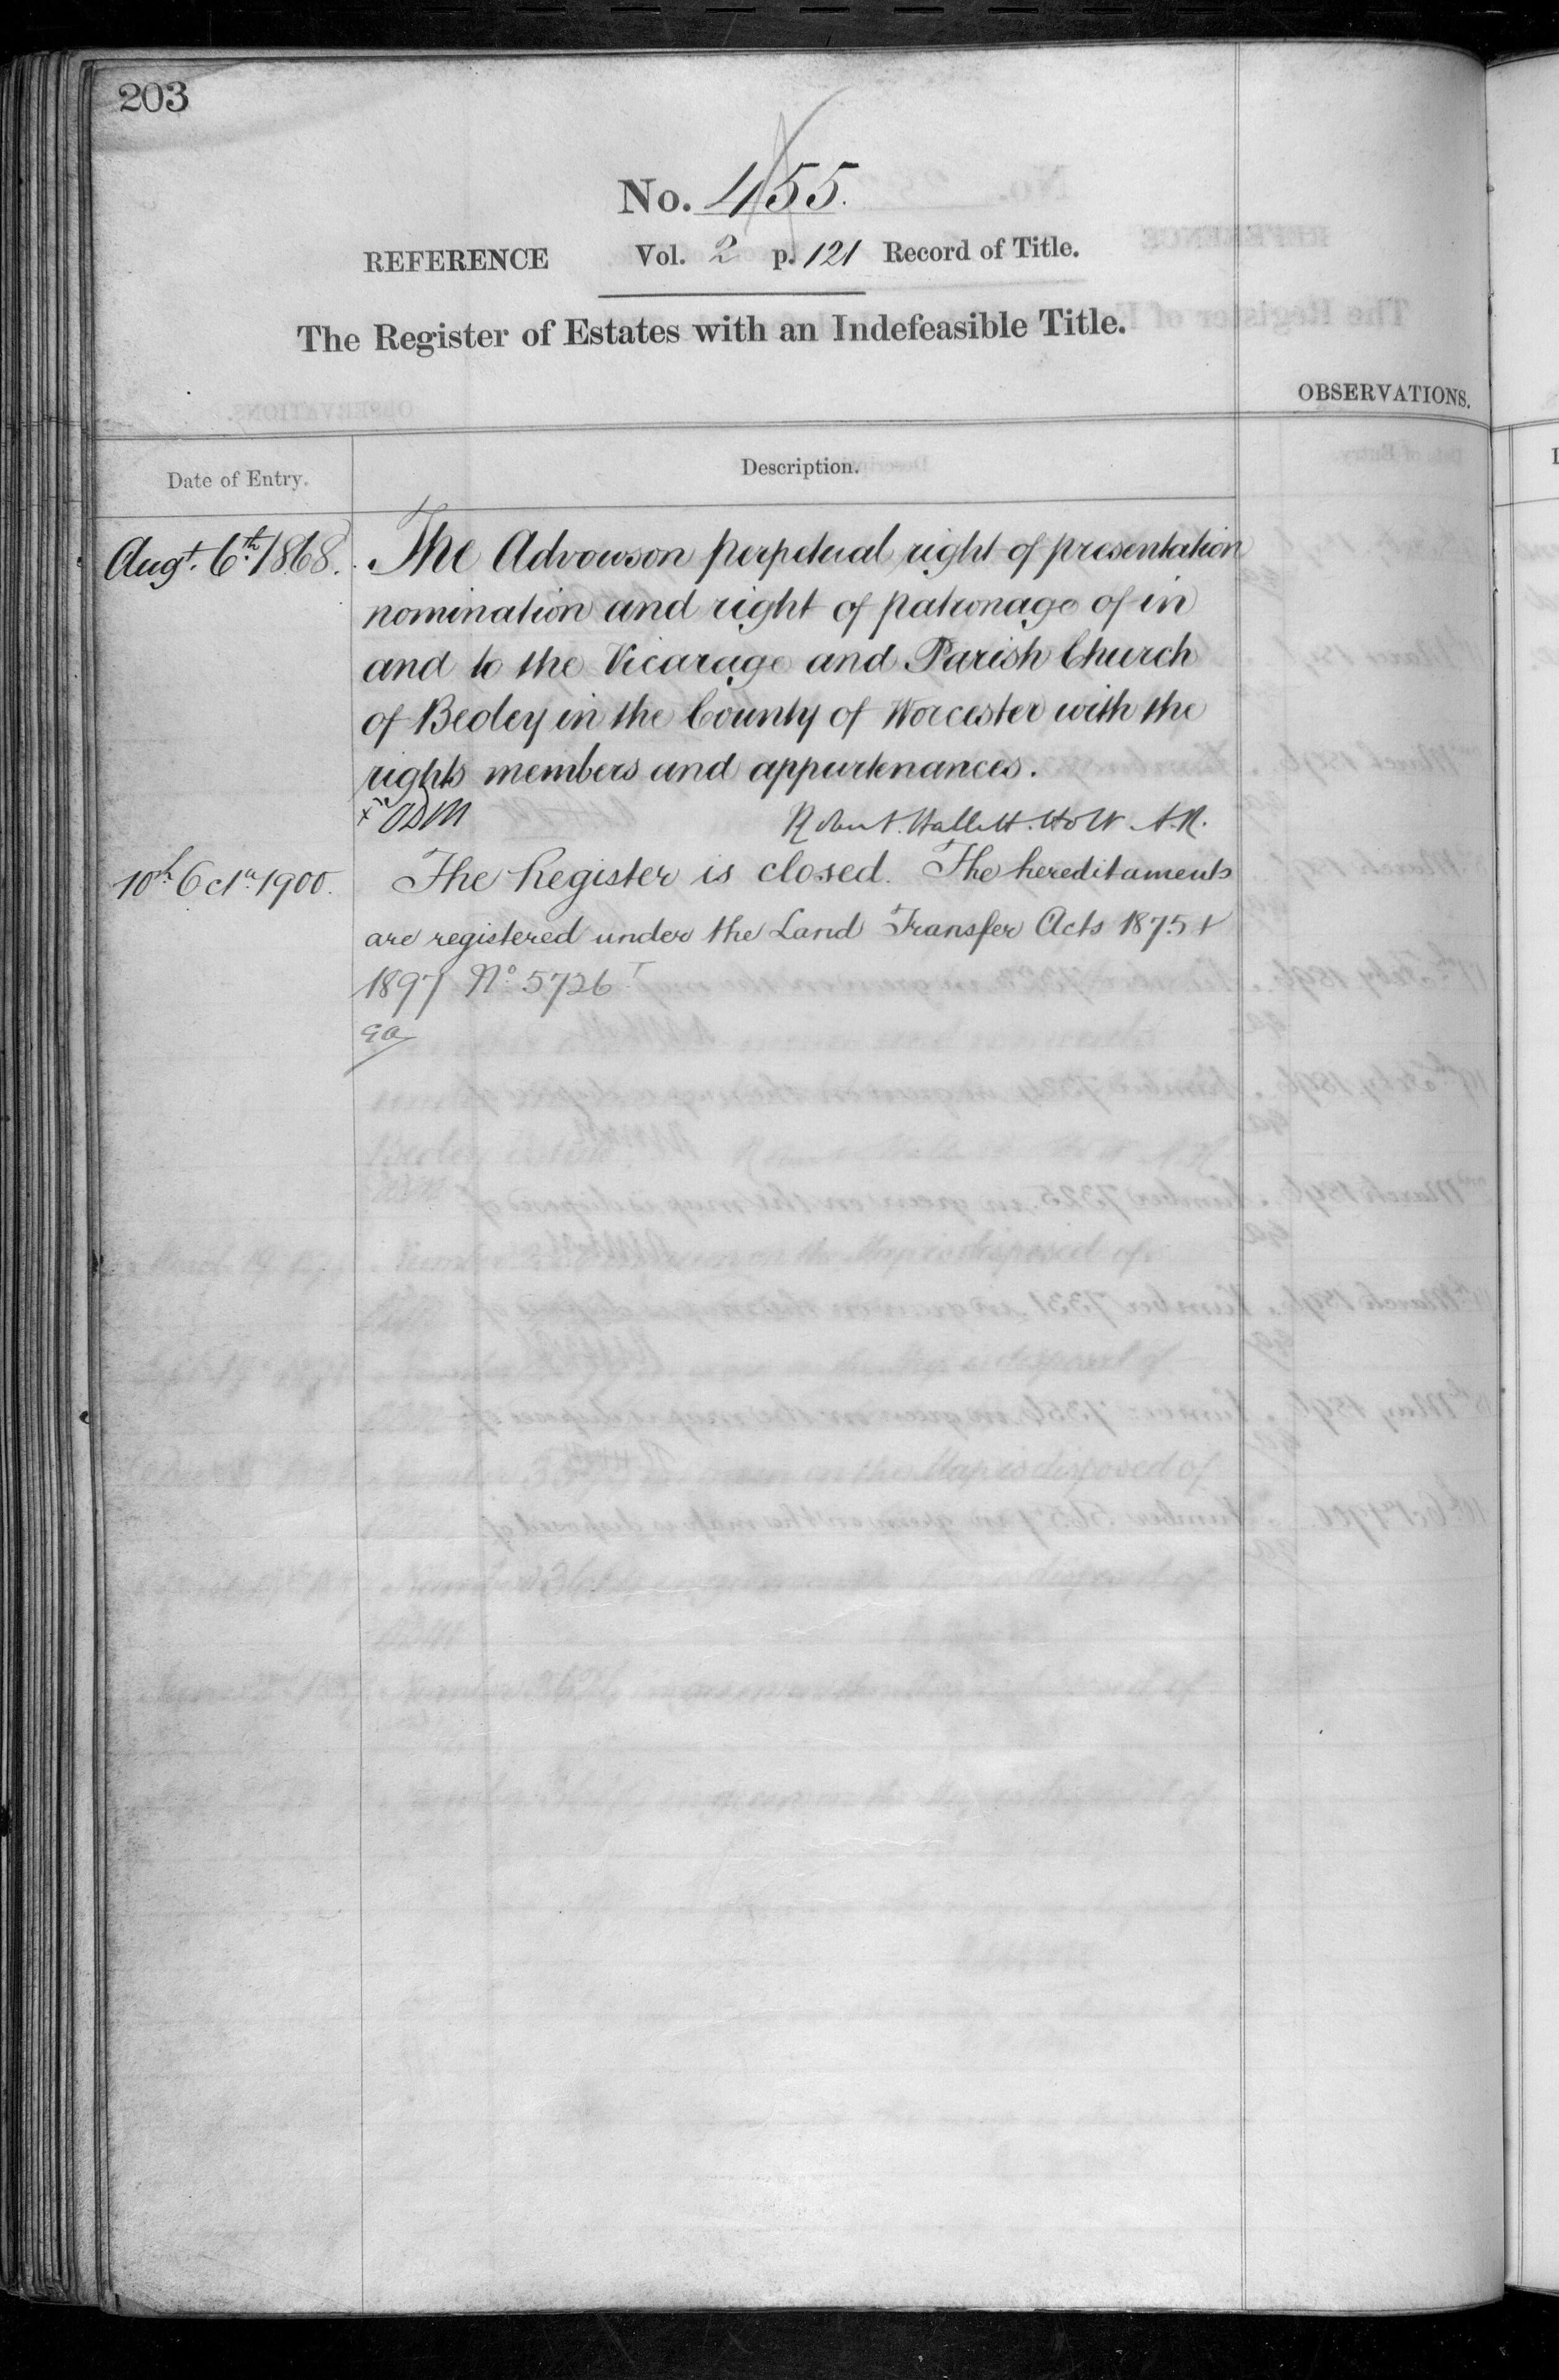 203
No. 455.
REFERENCE Vol. 2 p. 121 Record of Title.
The Register of Estates with an Indefeasible Title.
OBSERVATIONS.
Date of Entry.
Description.
Augt. 6th 1868. The Advowson perpetual right of presentation
nomination and right of patronage of in
and to the Vicarage and Parish Church
of Beoley in the County of Worcester with the
rights members and appurtenances.
Robert. Hallett. Holt. A.R.
10th Oct 1900. The Register is closed. The hereditaments
are registered under the Land Transfer Acts 1875 &
1897 No 5726